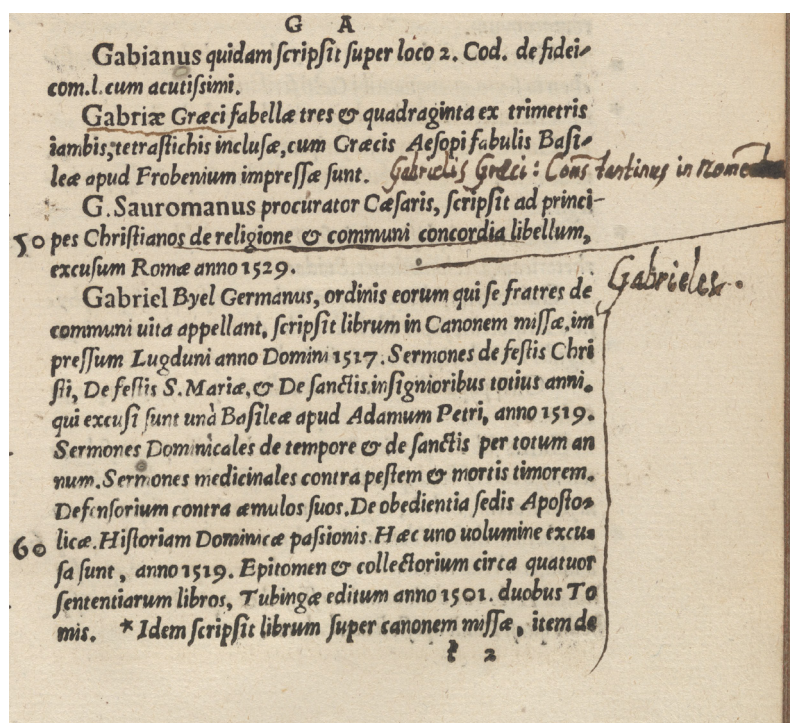 G A
Gabianus quidam ſcripſit ſuper loco 2. Cod. de fidei-
com.l.cum acutiſsimi.
Gabriæ Græci fabellæ tres & quadraginta ex trimetris
iambis, tetraſtichis incluſæ, cum Græcis Aeſopi fabulis Baſi-
leæ apud Frobenium impreſſæ ſunt. Gabrielis Græci: Constantinus in
G. Sauromanus procurator Cæſaris, ſcripſit ad princi-
50 pes Chriſtianos de religione & communi concordia libellum,
excuſum Romæ anno 1529.
Gabrieles.
Gabriel Byel Germanus, ordinis eorum qui ſe fratres de
communi uita appellant, ſcripſit librum in Canonem miſſæ, im
preſſum Lugduni anno Domini 1517. Sermones de feſtis Chri
ſti, De feſtis S. Mariæ, & De ſanctis inſignioribus totius anni.
qui excuſi ſunt unà Baſileæ apud Adamum Petri, anno 1519.
Sermones Dominicales de tempore & de ſanctis per totum an
num. Sermones medicinales contra peſtem & mortis timorem.
Defenſorium contra æmulos ſuos. De obedientia ſedis Apoſto-
60 licæ. Hiſtoriam Dominicæ paſsionis. Hæc uno uolumine excu-
ſa ſunt, anno 1519. Epitomen & collectorium circa quatuor
ſententiarum libros, Tubingæ editum anno 1501. duobus To
mis. * Idem ſcripſit librum ſuper canonem miſſæ, item de
t 2